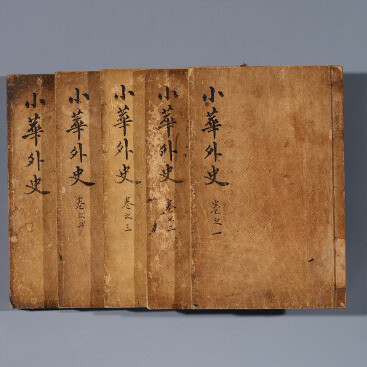 小華外史
卷之一
小華外史
卷之二
小華外史
卷之三
小華外史
小華外史